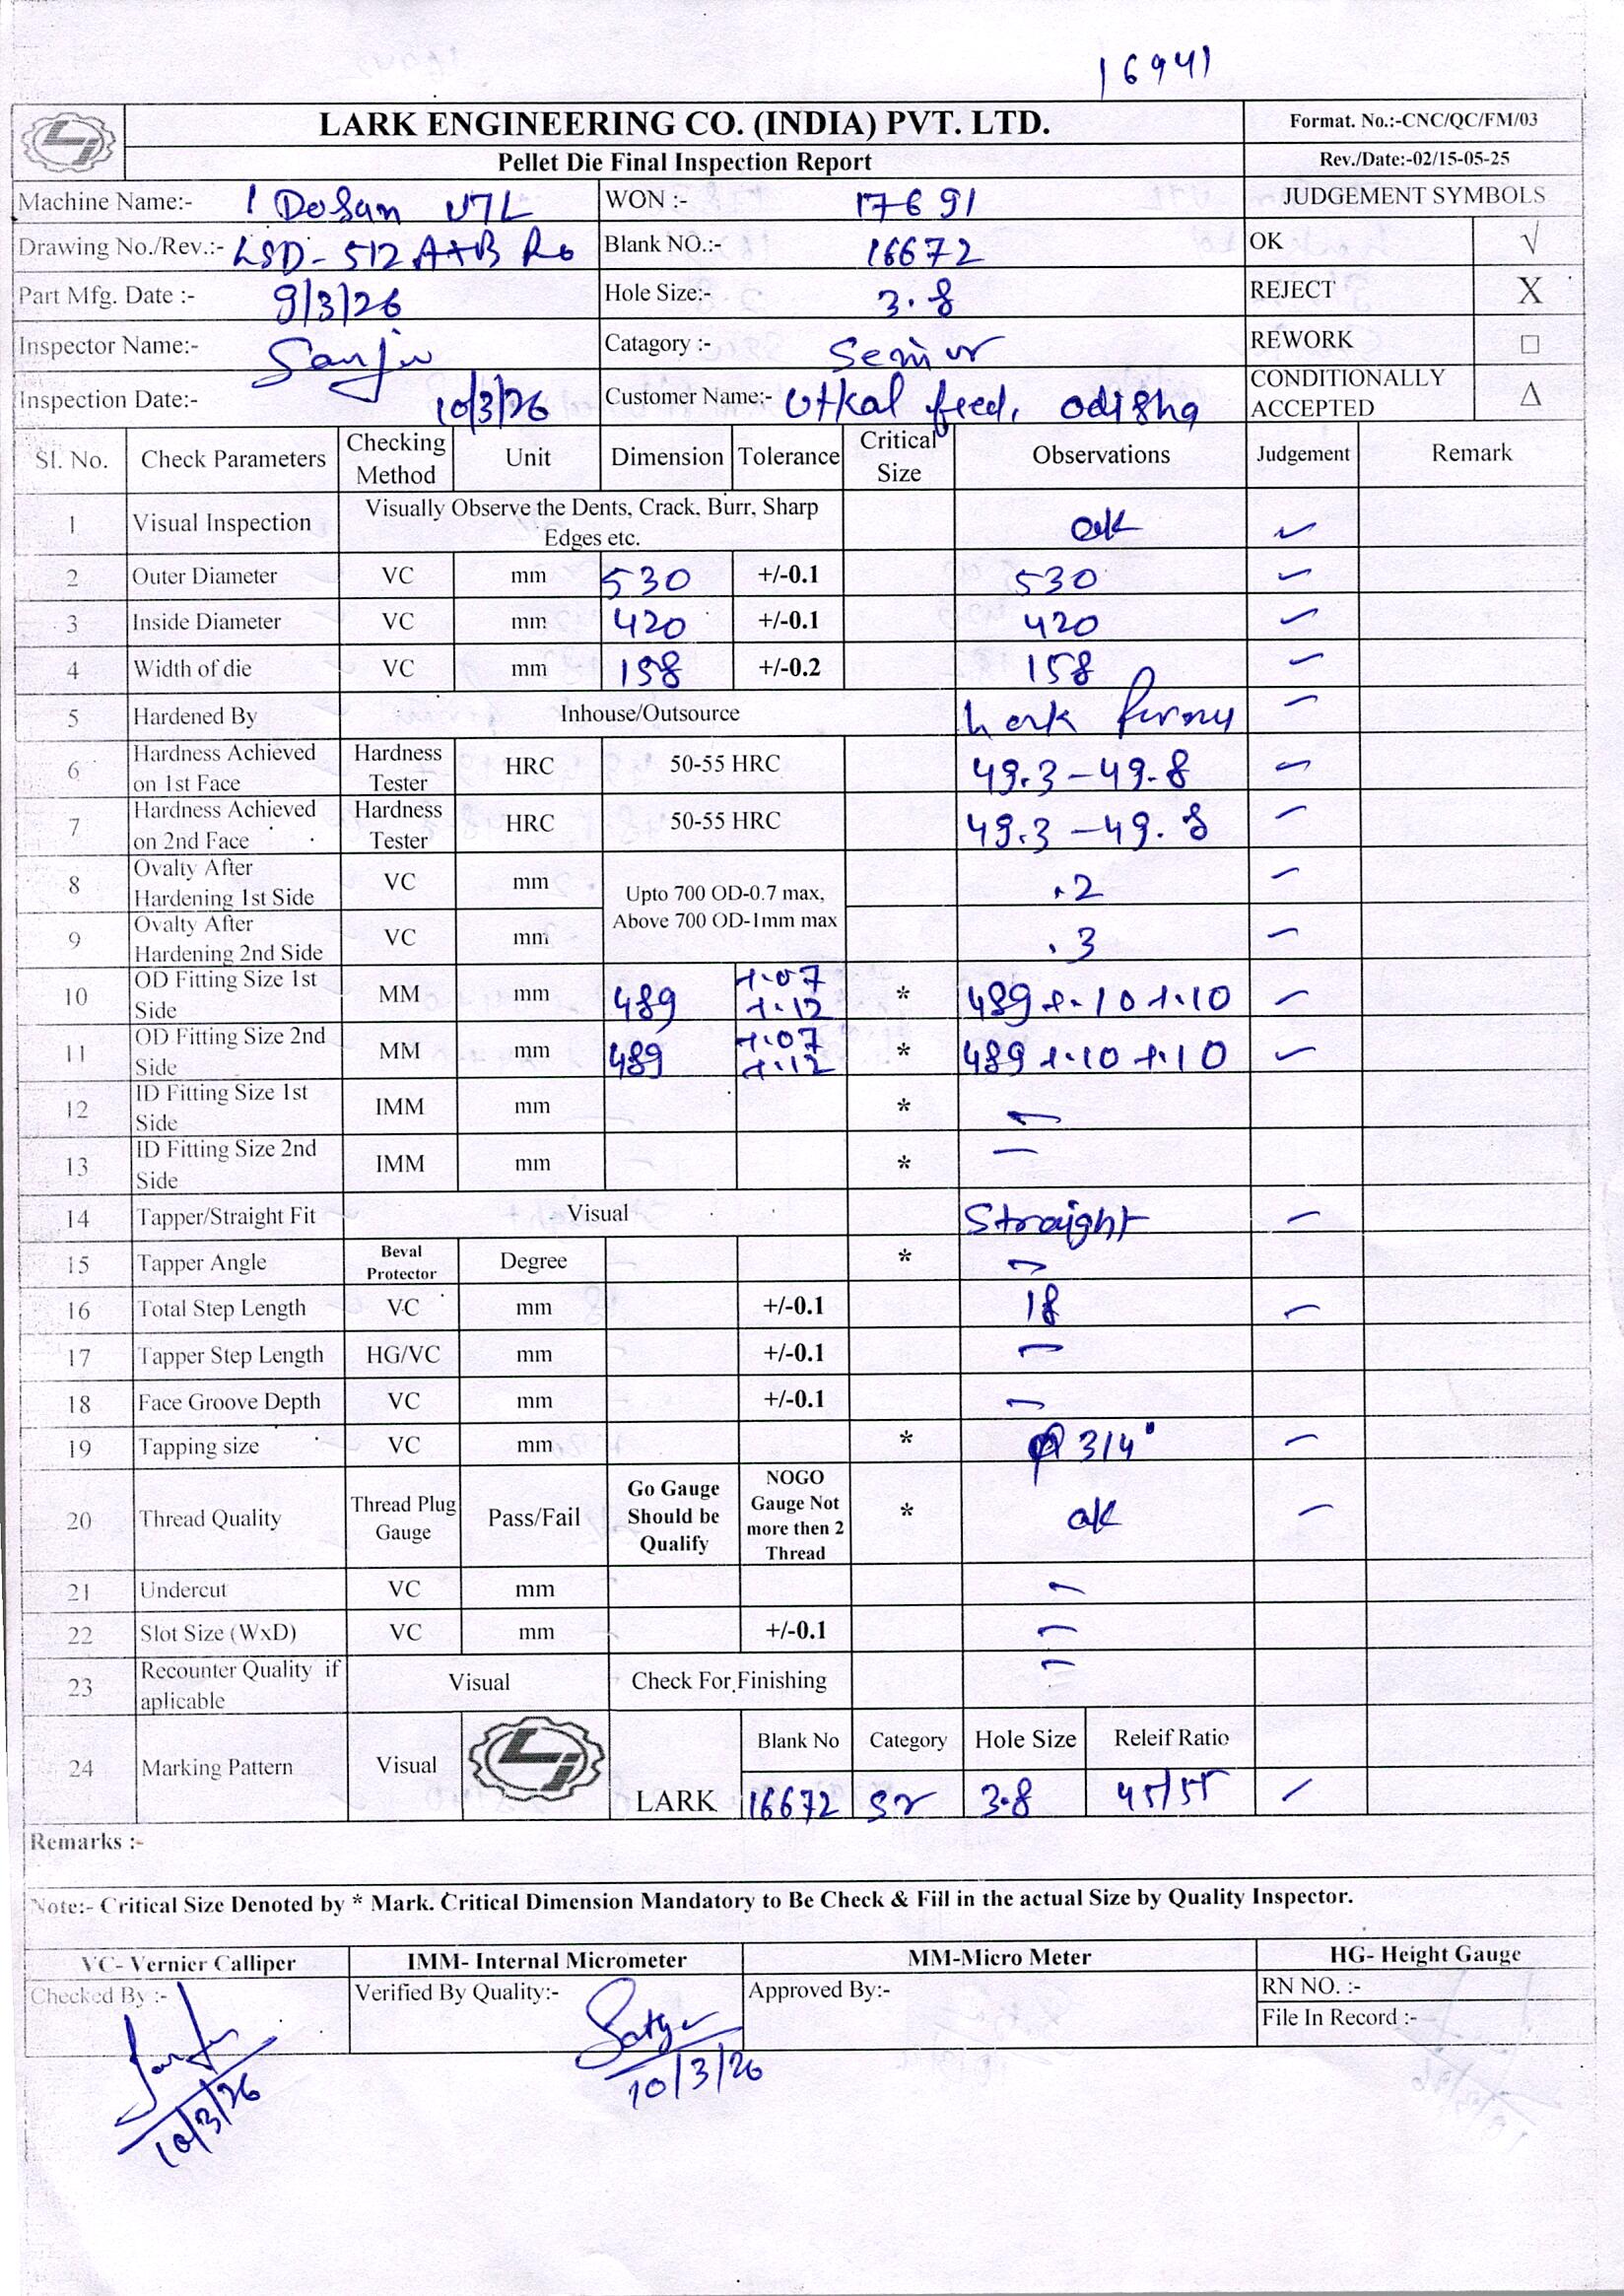 16941
LARK ENGINEERING CO. (INDIA) PVT. LTD.
Format. No.:-CNC/QC/FM/03
Pellet Die Final Inspection Report
Rev./Date:-02/15-05-25
Machine Name:- 1 DoSan VTL WON :- 17691 JUDGEMENT SYMBOLS
Drawing No./Rev.:- LSD-512 A+B Ro Blank NO.:- 16672 OK √
Part Mfg. Date :- 9/3/26 Hole Size:- 3.8 REJECT X
Inspector Name:- Sanju Catagory :- Senior REWORK □
Inspection Date:- 10/3/26 Customer Name:- Utkal feed, odisha CONDITIONALLY ACCEPTED Δ
Sl. No. Check Parameters Checking Method Unit Dimension Tolerance Critical Size Observations Judgement Remark
1 Visual Inspection Visually Observe the Dents, Crack, Burr, Sharp Edges etc. ok ✓
2 Outer Diameter VC mm 530 +/-0.1 530 ✓
3 Inside Diameter VC mm 420 +/-0.1 420 ✓
4 Width of die VC mm 158 +/-0.2 158 ✓
5 Hardened By Inhouse/Outsource Lark ✓
6 Hardness Achieved on 1st Face Hardness Tester HRC 50-55 HRC 49.3-49.8 ✓
7 Hardness Achieved on 2nd Face Hardness Tester HRC 50-55 HRC 49.3-49.8 ✓
8 Ovalty After Hardening 1st Side VC mm Upto 700 OD-0.7 max, Above 700 OD-1mm max .2 ✓
9 Ovalty After Hardening 2nd Side VC mm .3 ✓
10 OD Fitting Size 1st Side MM mm 489 +.07 +.12 * 489 +.10 +.10 ✓
11 OD Fitting Size 2nd Side MM mm 489 +.07 +.12 * 489 +.10 +.10 ✓
12 ID Fitting Size 1st Side IMM mm * -
13 ID Fitting Size 2nd Side IMM mm * -
14 Tapper/Straight Fit Visual Straight ✓
15 Tapper Angle Beval Protector Degree * -
16 Total Step Length VC mm +/-0.1 18 ✓
17 Tapper Step Length HG/VC mm +/-0.1 -
18 Face Groove Depth VC mm +/-0.1 -
19 Tapping size VC mm * 3/4" ✓
20 Thread Quality Thread Plug Gauge Pass/Fail Go Gauge Should be Qualify NOGO Gauge Not more then 2 Thread * ok ✓
21 Undercut VC mm -
22 Slot Size (WxD) VC mm +/-0.1 -
23 Recounter Quality if aplicable Visual Check For Finishing -
24 Marking Pattern Visual LARK Blank No Category Hole Size Releif Ratio
16672 Sr 3.8 45/55 ✓
Remarks :-
Note:- Critical Size Denoted by * Mark. Critical Dimension Mandatory to Be Check & Fill in the actual Size by Quality Inspector.
VC- Vernier Calliper IMM- Internal Micrometer MM-Micro Meter HG- Height Gauge
Checked By :- Sanju 10/3/26 Verified By Quality:- Satya 10/3/26 Approved By:- RN NO. :-
File In Record :-